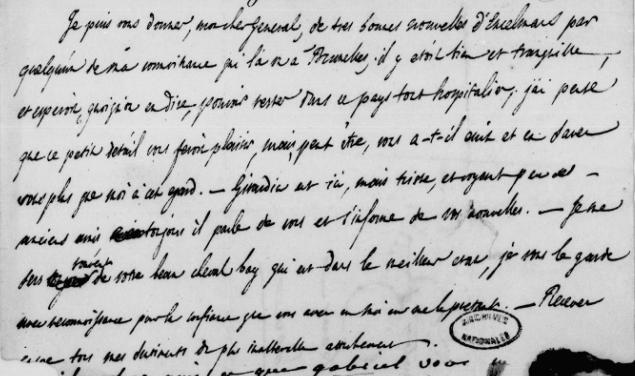 Je puis vous donner, mon cher Général, de très bonnes nouvelles d'Excelmans par
quelqu'un de ma connoissance qui l'a vu à Bruxelles. il y etoit bien et tranquille,
et esperoit, quoiqu'on en dise, pouvoir rester dans ce pays tout hospitalier. j'ai pensé
que ce petit détail vous feroit plaisir, mais, peut être, vous a-t-il écrit et en savez
vous plus que moi à cet égard. — Girardin est ici, mais triste, et voyant peu ses
anciens amis toujours il parle de vous et s'informe de vos nouvelles. — Je me
sers souvent de votre beau cheval bay qui est dans le meilleur état, je vous le garde
avec reconnoissance pour la confiance que vous avez en moi en me le pretant. — Recevez
tous mes sentiments de plus inaltérable attachement.
que gabriel vous
ARCHIVES
NATIONALES